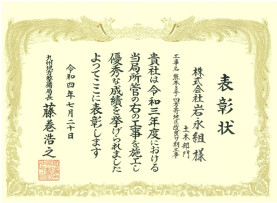 表彰状
株式会社岩永組様
土木部門
貴社は令和三年度における
当局所管の右の工事を施工し
優秀な成績を挙げられました
よってここに表彰します
令和四年七月二十日
九州地方整備局長
藤巻浩之